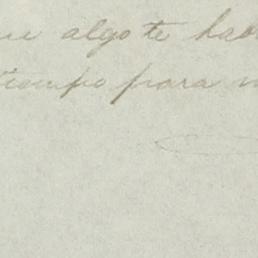 ue algo te hab
tiempo para